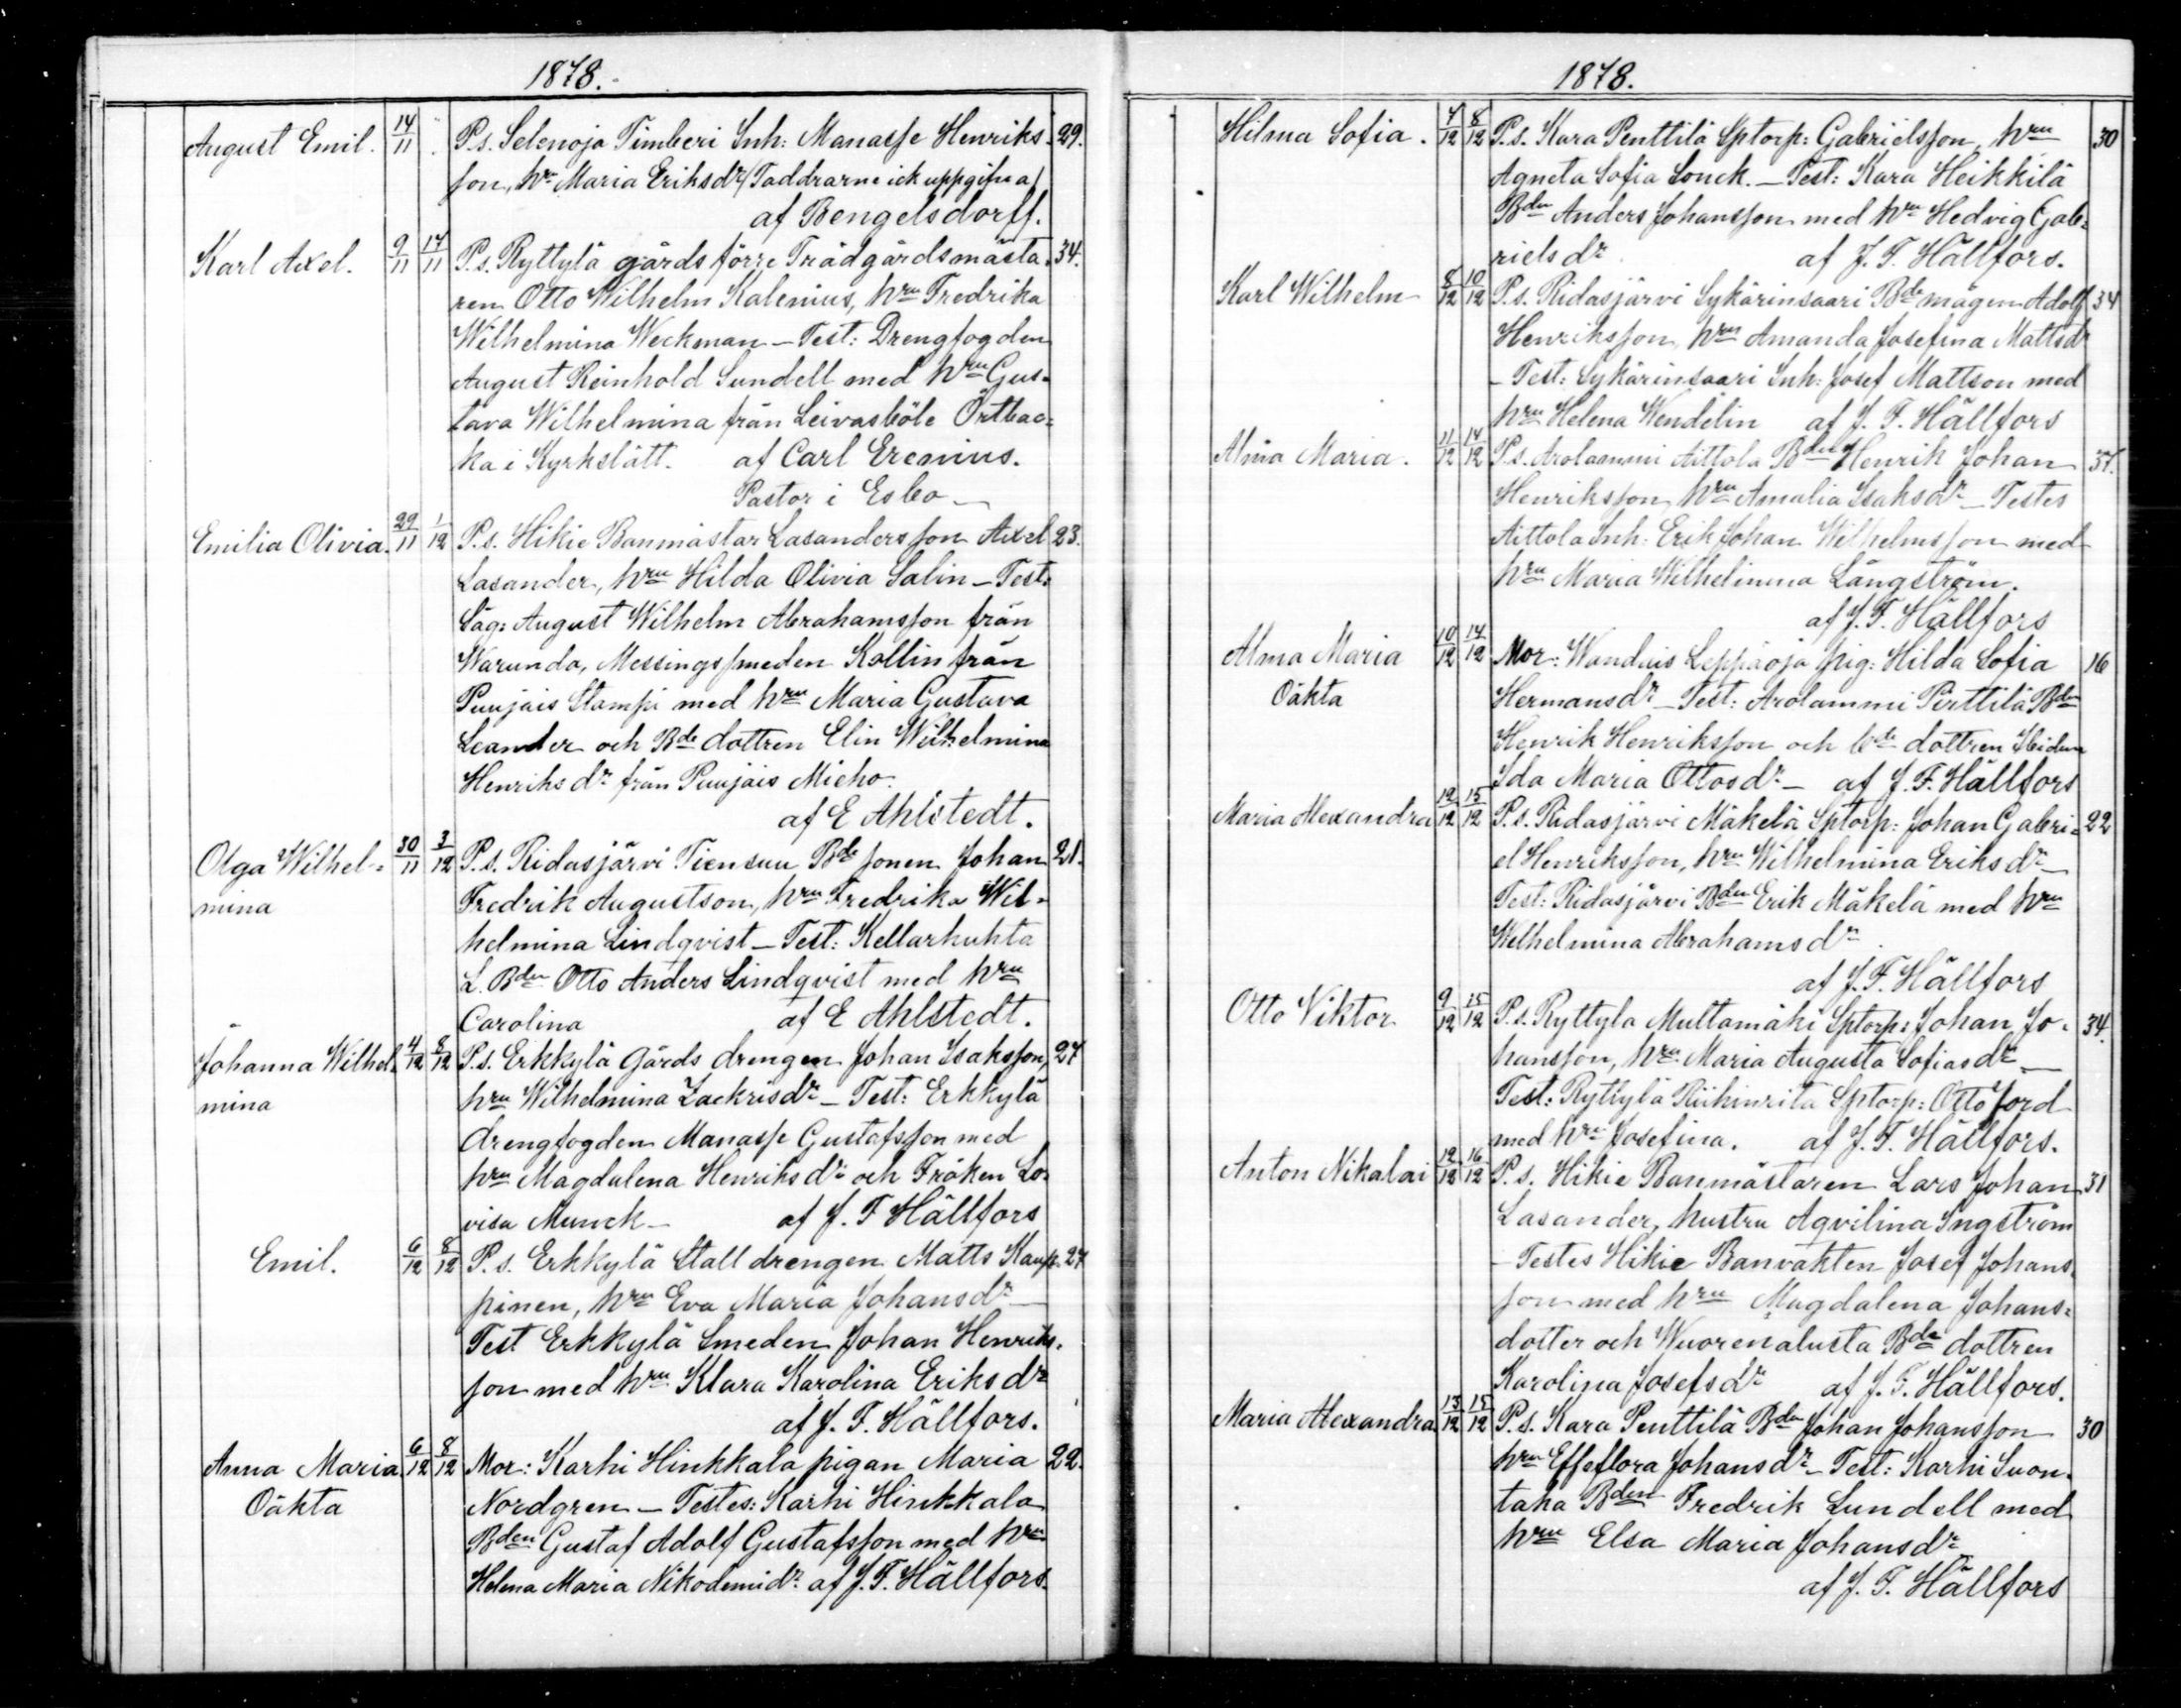 1878.
August Emil. 14/11 P.s. Selenoja Timberi Inh: Manasse Henriks- 29.
son, hru Maria Eriksdr (Faddrarne ick uppgifna)
af Bengelsdorff.
Karl Axel. 9/11 17/11 P.s. Ryttylä gårds förre Trädgårdsmästa- 34.
ren Otto Wilhelm Kalenius, hru Fredrika
Wilhelmina Weckman – Test: Drengfogden
August Reinhold Sundell med hru Gus-
tava Wilhelmina från Leivasböle Örtbac-
ka i Kyrkslätt. af Carl Erenius.
Pastor i Esbo –
Emilia Olivia. 29/11 1/12 P.s. Hikie Banmästar Lasandersson Axel 23.
Lasander, hru Hilda Olivia Salin – Test:
Låg: August Wilhelm Abrahamsson från
Warunda, Messingssmeden Kollin från
Puujais Stampi med hru Maria Gustava
Leander och Bde dottren Elin Wilhelmina
Henriksdr från Puujais Mieho.
af E Ahlstedt.
Olga Wilhel- 30/11 3/12 P.s. Ridasjärvi Tiensuu Bde sonen Johan 21.
mina Fredrik Augustson, hru Fredrika Wil-
helmina Lindqvist – Test: Kellarhuhta
L. Bden Otto Anders Lindqvist med hru
Carolina af E Ahlstedt.
Johanna Wilhel- 4/12 8/12 P.s. Erkkylä Gårds drengen Johan Isaksson, 27
mina hru Wilhelmina Zackrisdr – Test: Erkkylä
drengfogden Manasse Gustafsson med
hru Magdalena Henriksdr och Fröken Lo-
visa Munck – af J. F Hällfors
Emil. 6/12 8/12 P.s. Erkkylä Stalldrengen Matts Kaup- 27
pinen, hru Eva Maria Johansdr –
Test Erkkylä Smeden Johan Henriks-
son med hru Klara Karolina Eriksdr
af J. F. Hällfors.
Anna Maria 6/12 8/12 Mor: Karhi Hinkkala pigan Maria 22.
Oäkta Nordgren – Testes: Karhi Hinkkala
Bden Gustaf Adolf Gustafsson med hru
Helena Maria Nikodemidr af J. F. Hällfors.
1878.
Hilma Sofia. 7/12 8/12 P.s. Kara Penttilä Sptorp: Gabrielsson, hru 30
Agneta Sofia Lonck. – Test: Kara Heikkilä
Bden Anders Johansson med hru Hedvig Gab-
rielsdr af J. F. Hällfors.
Karl Wilhelm 8/12 10/12 P.s. Ridasjärvi Sykärinsaari Bde mågen Adolf 34
Henriksson, hru Amanda Josefina Mattsdr
– Test: Sykärinsaari Inh: Josef Mattson med
hru Helena Wendelin af J. F. Hällfors
Alma Maria. 11/12 14/12 P.s. Arolammi Aittola Bden Henrik Johan 37.
Henriksson, hru Amalia Isaksdr – Testes
Aittola Inh: Erik Johan Wilhelmsson med
hru Maria Wilhelmina Långström.
af J. F. Hällfors
Alma Maria 10/12 14/12 Mor: Wanduis Leppäoja pig: Hilda Sofia 16
Oäkta Hermansdr – Test: Arolammi Perttilä Bden
Henrik Henriksson och bde dottren
Ida Maria Ottosdr – af J. F. Hällfors
Maria Alexandra 12/12 15/12 P.s. Ridasjärvi Mäkelä Sptorp: Johan Gabri- 22
el Henriksson, hru Wilhelmina Eriksdr –
Test: Ridasjärvi Bden Erik Mäkelä med hru
Wilhelmina Abrahamsdr.
af J. F. Hällfors
Otto Viktor 9/12 15/12 P.s. Ryttyla Multamäki Sptorp: Johan Jo- 34.
hansson, hru Maria Augusta Sofiasdr –
Test: Ryttylä Sptorp: Otto Jord
med hru Josefina. af J. F. Hällfors.
Anton Nikalai 12/12 16/12 P.s. Hikie Banmästaren Lars Johan 31
Lasander, hustru Aqvilina Ingström
– Testes Hikie Banvakten Josef Johans-
son med hru Magdalena Johans-
dotter och Wuorenalusta Bde dottren
Karolina Josefsdr af J. F. Hällfors.
Maria Alexandra 13/12 15/12 P.s. Kara Penttilä Bden Johan Johansson 30
hru Effeflora Johansdr – Test: Karhi Suon-
taka Bden Fredrik Lundell med
hru Elsa Maria Johansdr
af J. F. Hällfors